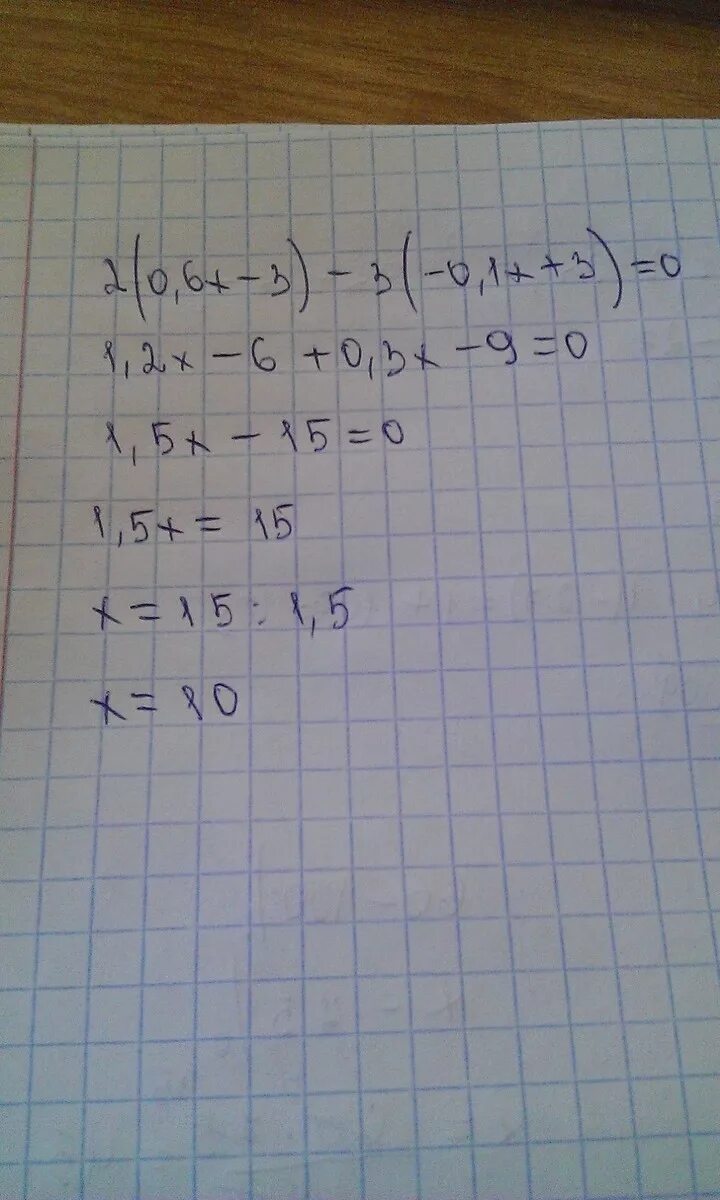 2(0,6x-3)-3(-0,1x+3)=0
1,2x-6+0,3x-9=0
1,5x-15=0
1,5x=15
x=15:1,5
x=10